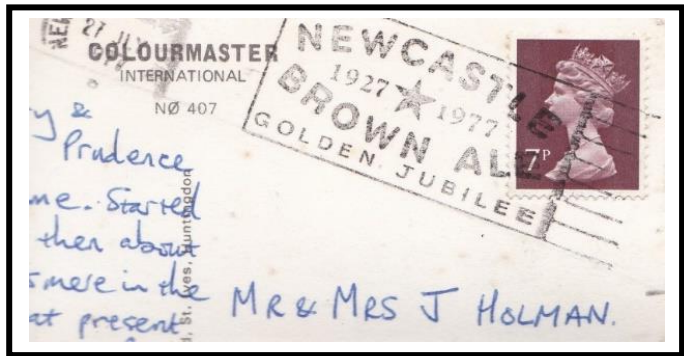 27 JLY
COLOURMASTER
INTERNATIONAL
NØ 407
NEWCASTLE
1927 ★ 1977
BROWN ALE
GOLDEN JUBILEE
7P
y &
Prudence
me. Started
then about
smere in the
at present
St. Ives, Huntingdon
MR & MRS J HOLMAN.